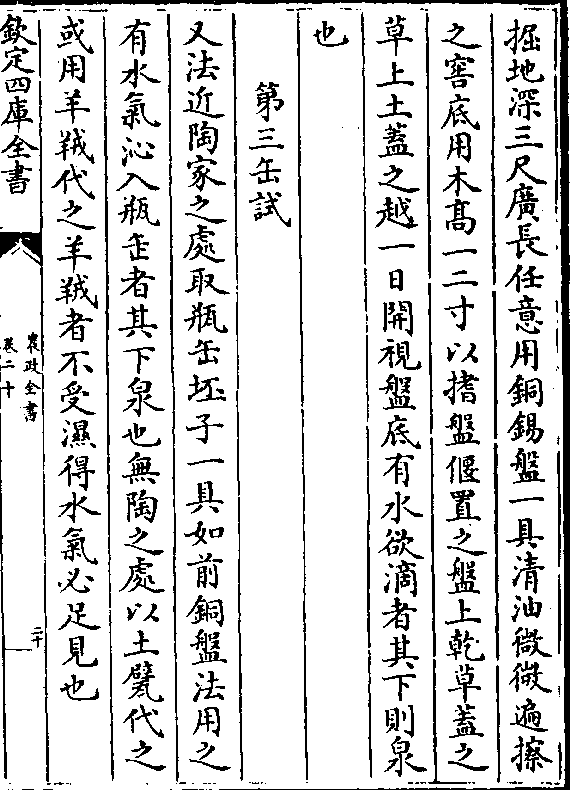 掘地深三尺廣長任意用銅錫盤一具清油微微遍擦
之窖底用木髙一二寸以搘盤偃置之盤上乾草蓋之
草上土蓋之越一日開視盤底有水欲滴者其下則泉
也
第三缶試
又法近陶家之處取瓶缶坯子一具如前銅盤法用之
有水氣沁入瓶缶者其下泉也無陶之處以土甓代之
或用羊羢代之羊羢者不受濕得水氣必足見也
欽定四庫全書
農政全書
卷二十
二十